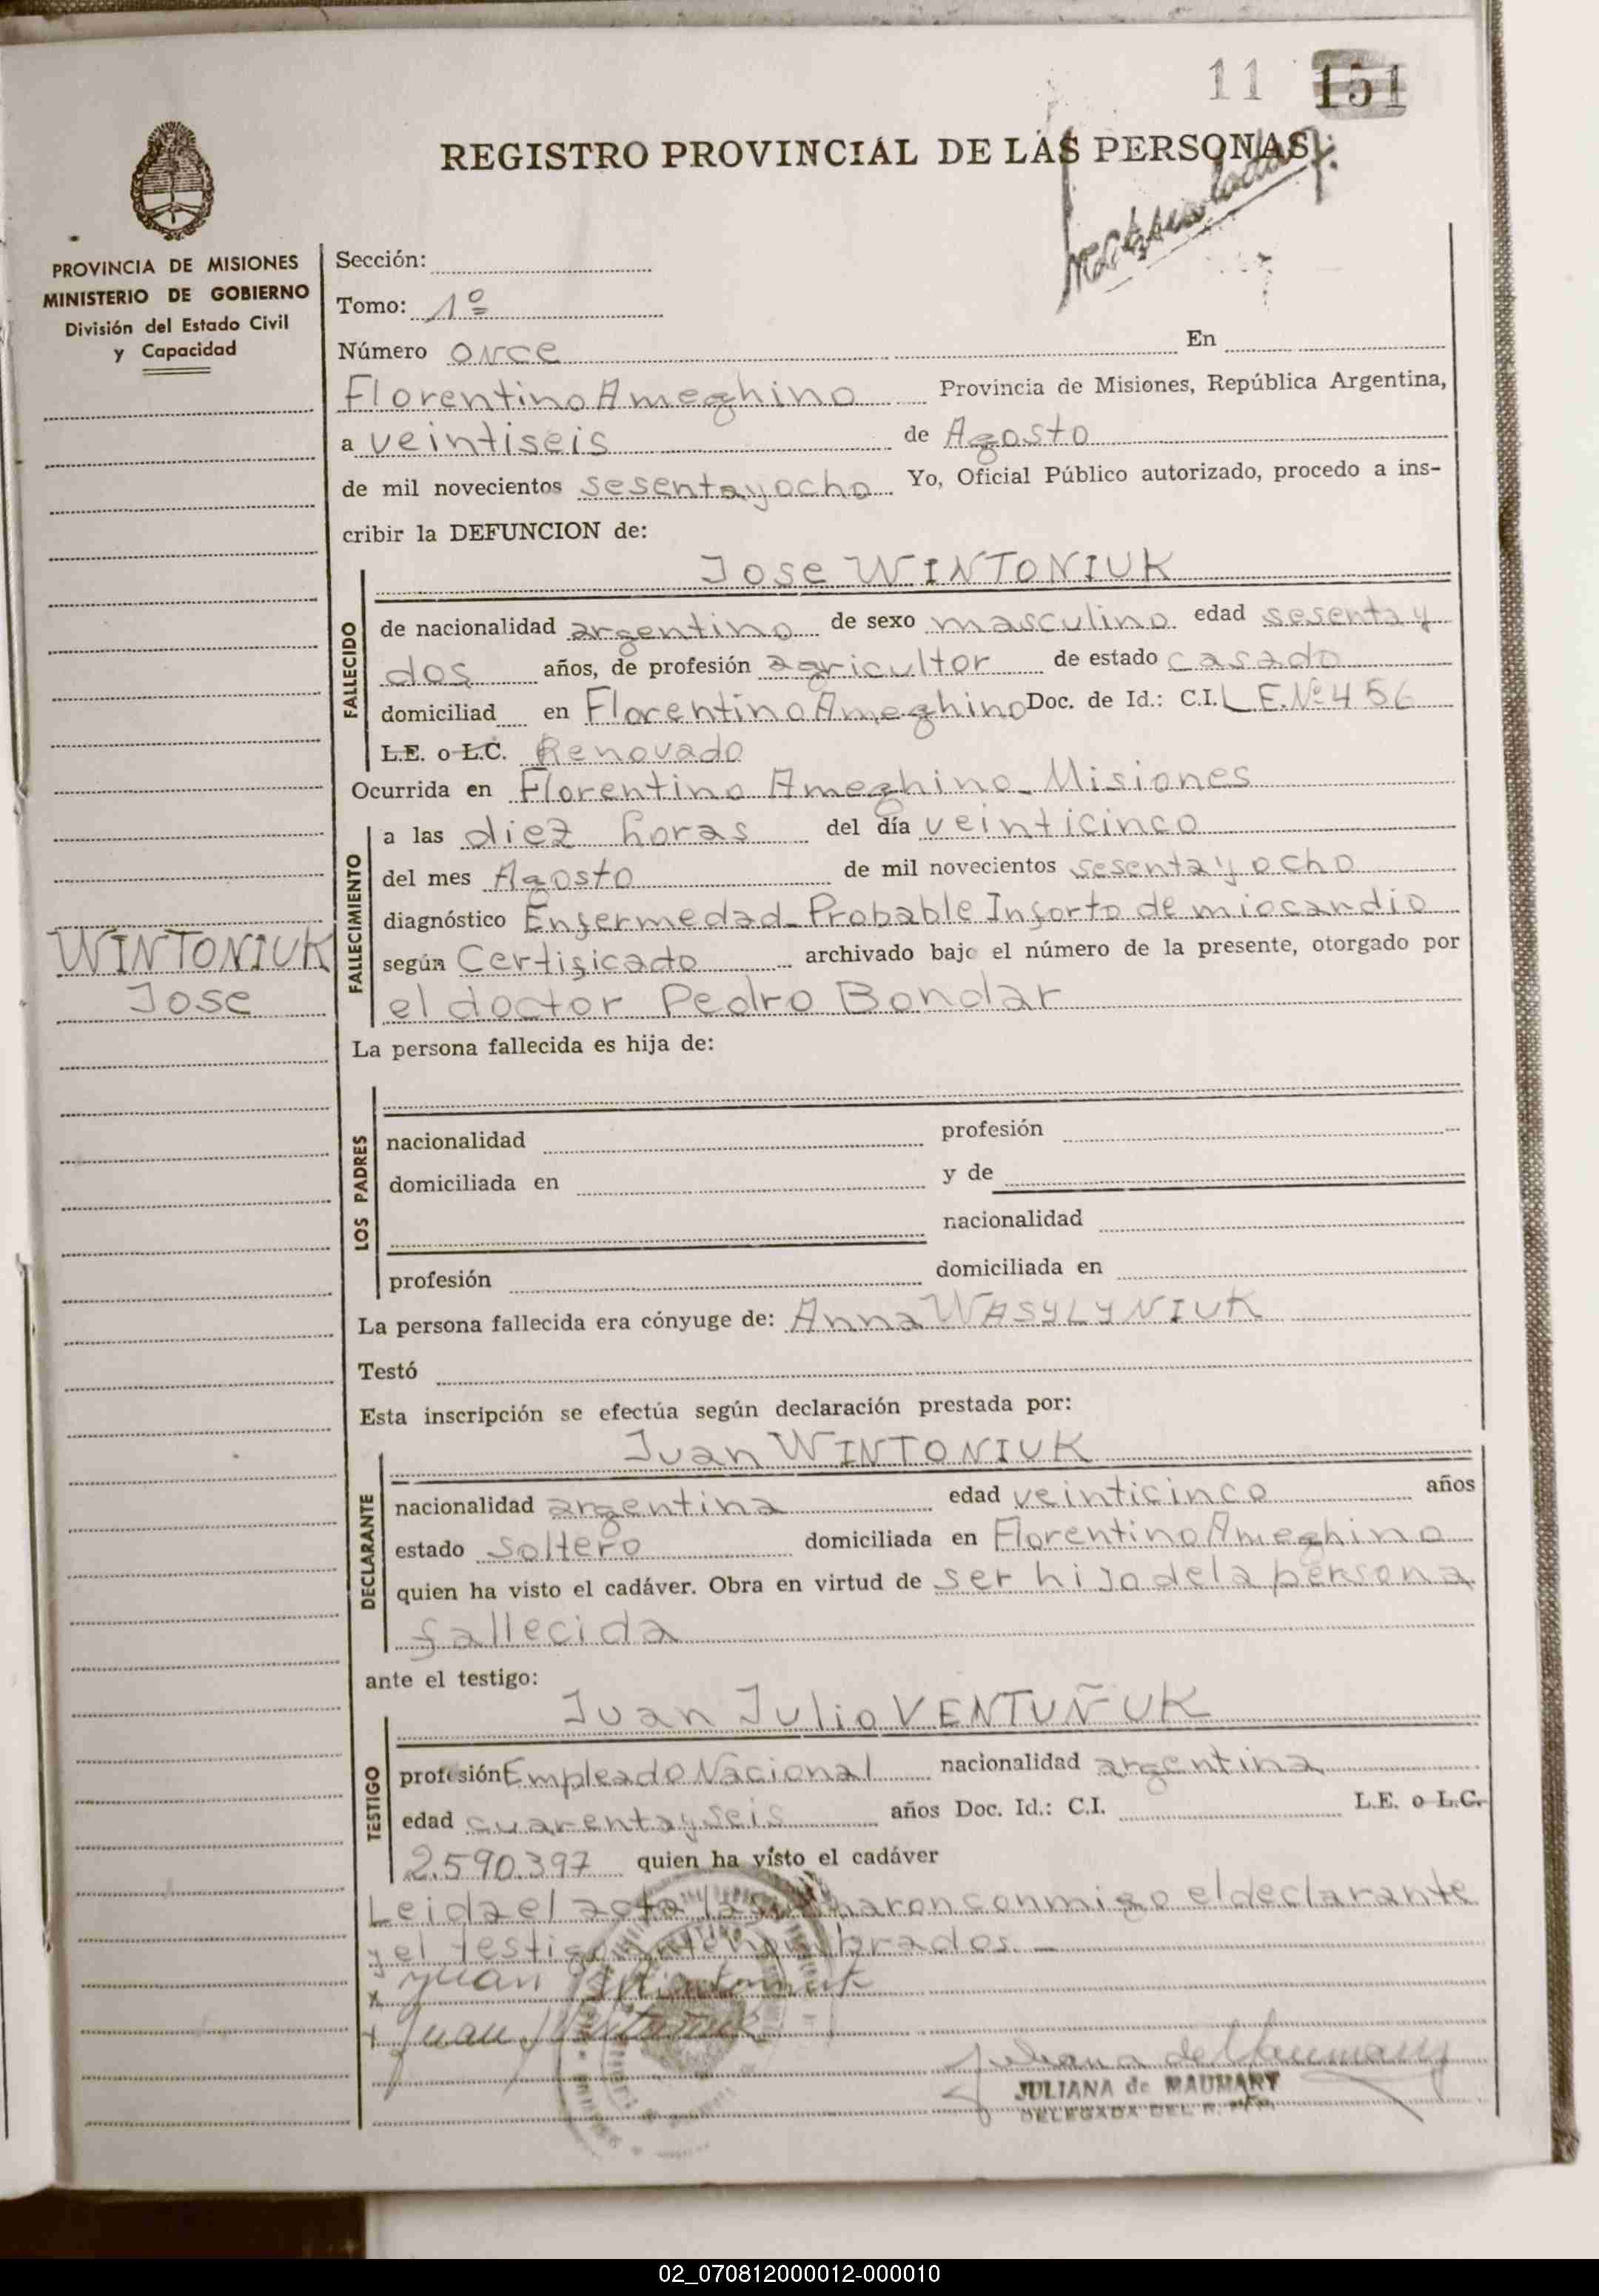 11 151
REGISTRO PROVINCIAL DE LAS PERSONAS
PROVINCIA DE MISIONES
MINISTERIO DE GOBIERNO
División del Estado Civil
y Capacidad
WINTONIUK
Jose
Sección:
Tomo: 1º
Número once En
Florentino Ameghino Provincia de Misiones, República Argentina,
a veintiseis de Agosto
de mil novecientos sesentayocho Yo, Oficial Público autorizado, procedo a ins-
cribir la DEFUNCION de:
Jose WINTONIUK
FALLECIDO
de nacionalidad argentino de sexo masculino edad sesenta y
dos años, de profesión agricultor de estado casado
domiciliad en Florentino Ameghino Doc. de Id.: C.I. L.E.Nº 456
L.E. o L.C. Renovado
Ocurrida en Florentino Ameghino - Misiones
FALLECIMIENTO
a las diez horas del día veinticinco
del mes Agosto de mil novecientos sesenta y ocho
diagnóstico Enfermedad - Probable Inforto de miocandio
según Certificado archivado bajo el número de la presente, otorgado por
el doctor Pedro Bondar
La persona fallecida es hija de:
LOS PADRES
nacionalidad profesión
domiciliada en y de
nacionalidad
profesión domiciliada en
La persona fallecida era cónyuge de: Anna WASYLYNIUK
Testó
Esta inscripción se efectúa según declaración prestada por:
Juan WINTONIUK
DECLARANTE
nacionalidad argentina edad veinticinco años
estado soltero domiciliada en Florentino Ameghino
quien ha visto el cadáver. Obra en virtud de ser hijo de la persona
fallecida
ante el testigo:
Juan Julio VENTUÑUK
TESTIGO
profesión Empleado Nacional nacionalidad argentina
edad cuarentayseis años Doc. Id.: C.I. L.E. o L.C.
2.590.397 quien ha visto el cadáver
Leida el acta la conmigo el declarante
y el testigo
x Juan Wintoniuk
x Juan
Juliana de Maumary
JULIANA de MAUMARY
DELEGADA DEL R.
02_070812000012-000010